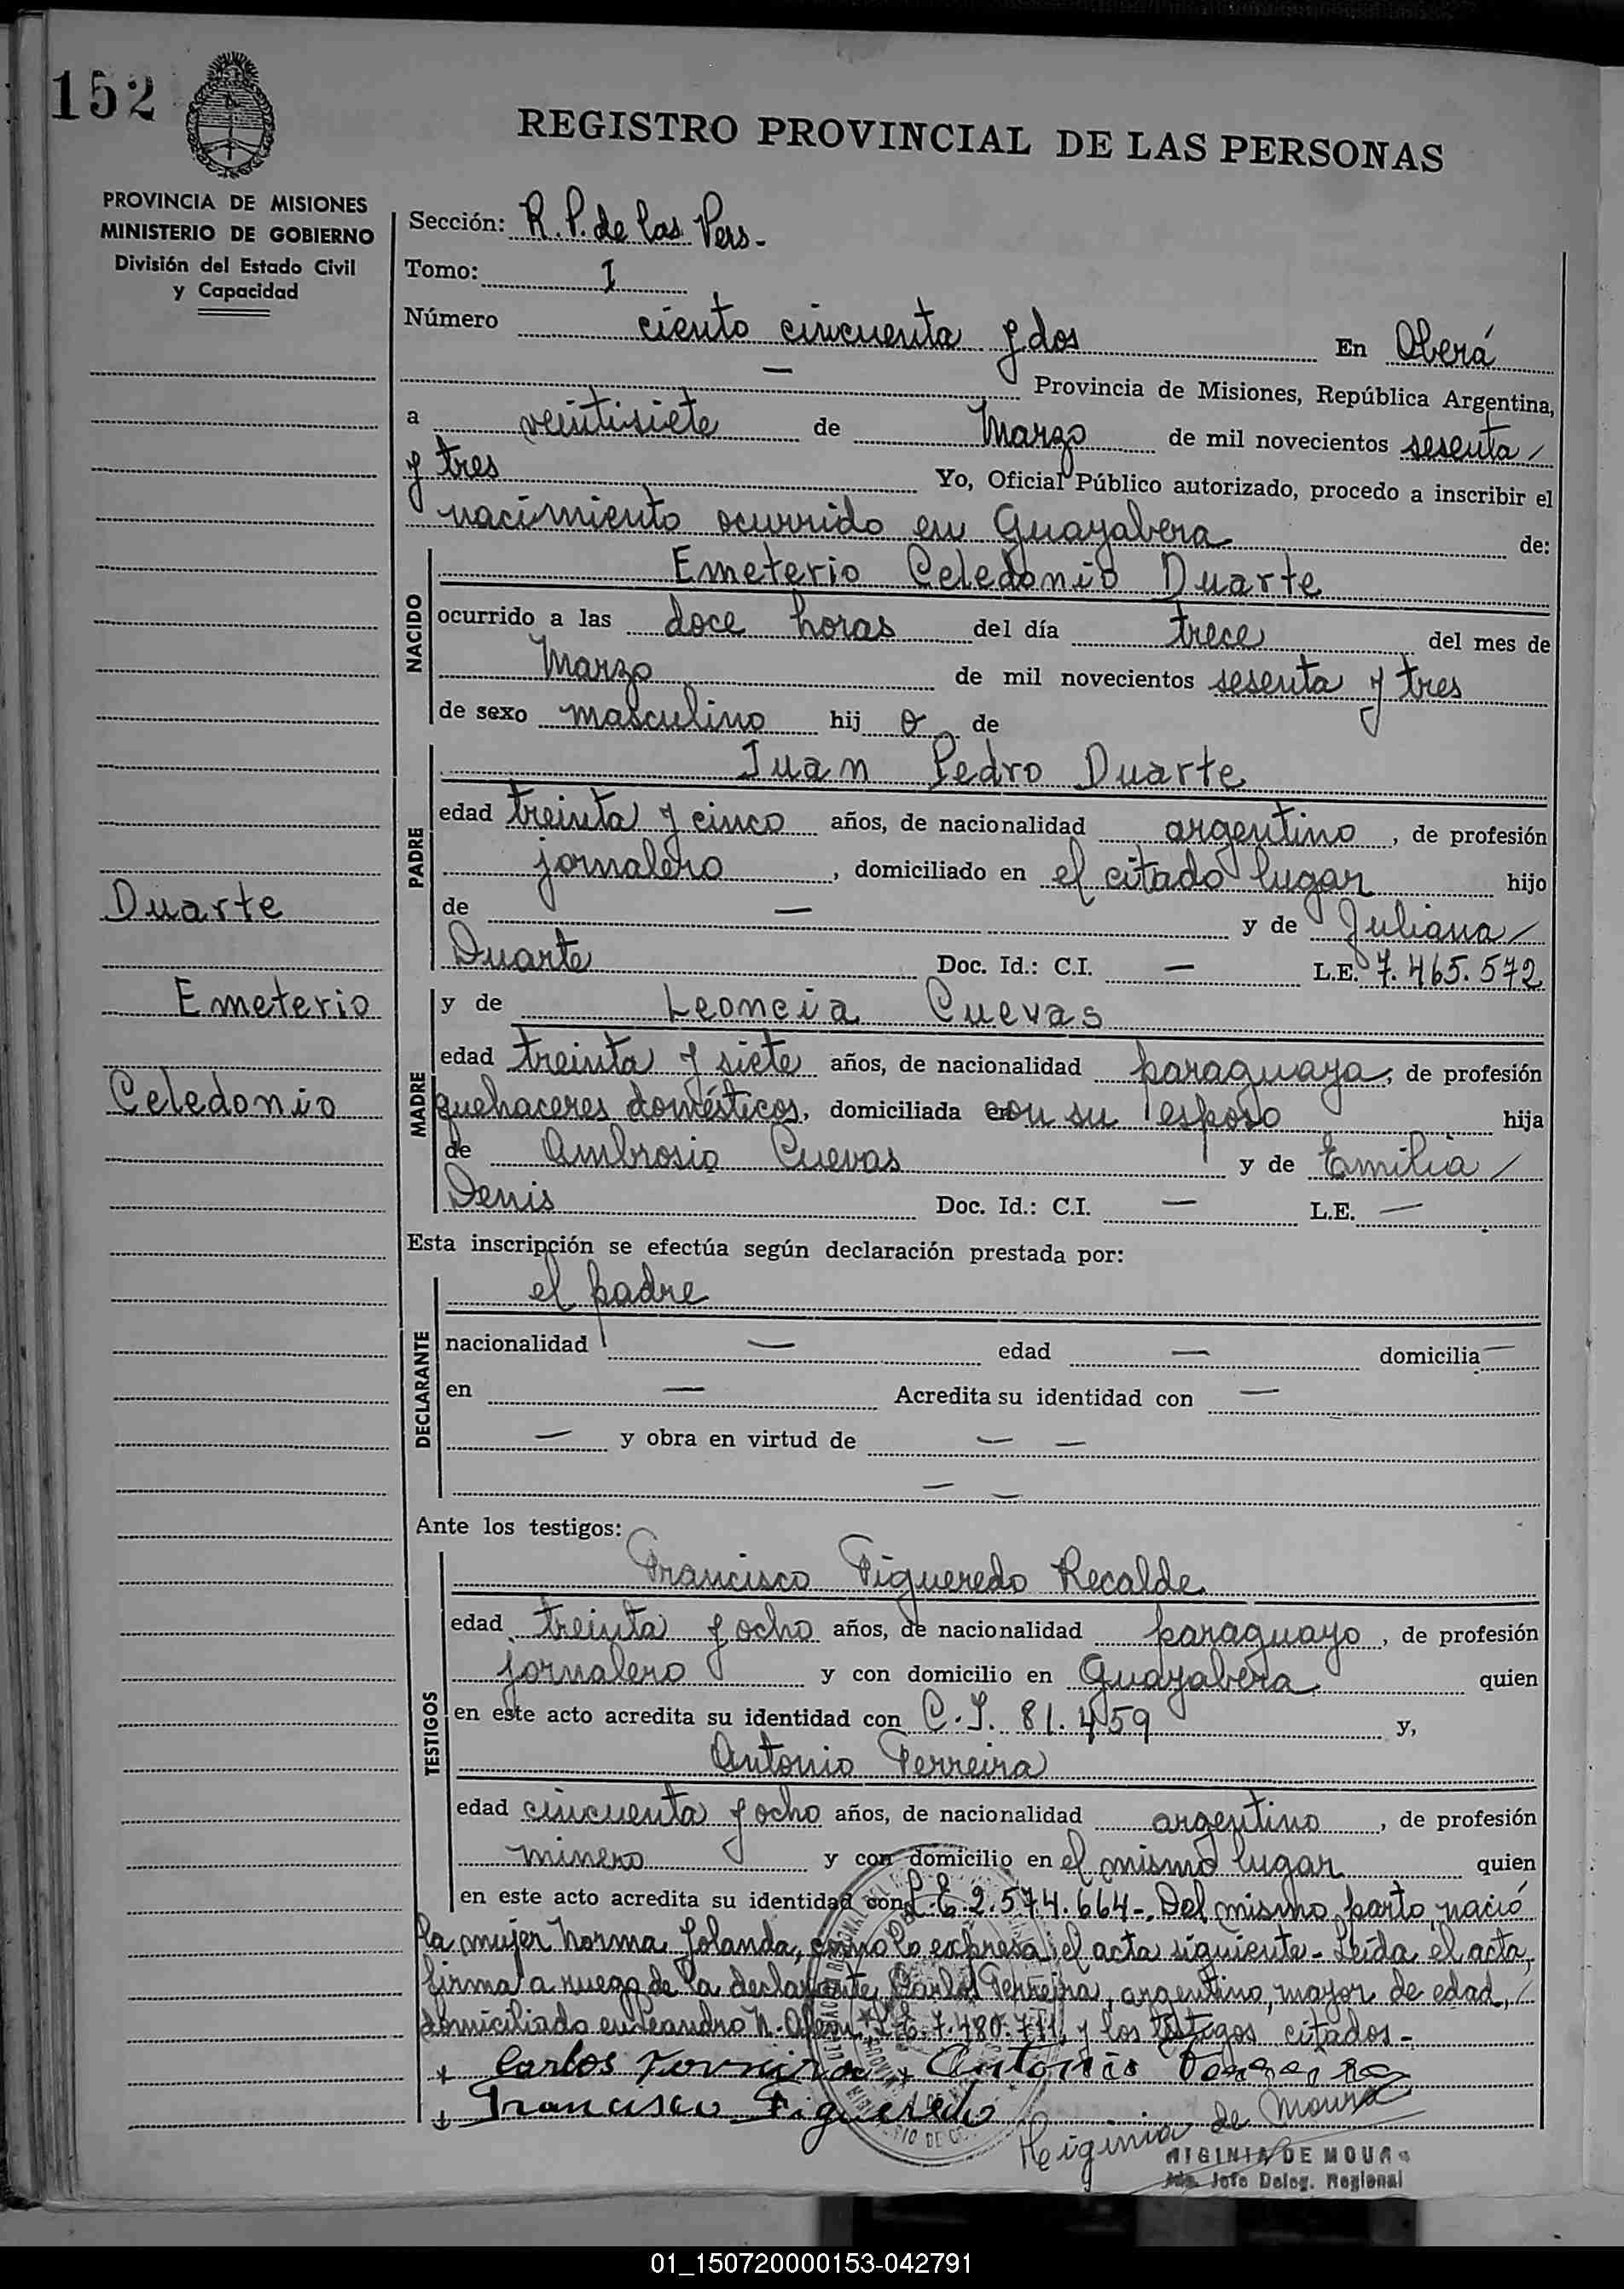 152
REGISTRO PROVINCIAL DE LAS PERSONAS
PROVINCIA DE MISIONES
MINISTERIO DE GOBIERNO
División del Estado Civil
y Capacidad
Sección: R. P. de las Pers-
Tomo: I
Número ciento cincuenta y dos En Oberá
— Provincia de Misiones, República Argentina,
a veintisiete de Marzo de mil novecientos sesenta
y tres Yo, Oficial Público autorizado, procedo a inscribir el
nacimiento ocurrido en Guayabera de:
NACIDO
Emeterio Celedonio Duarte
ocurrido a las doce horas del día trece del mes de
Marzo de mil novecientos sesenta y tres
de sexo masculino hijo de
PADRE
Juan Pedro Duarte
edad treinta y cinco años, de nacionalidad argentino, de profesión
jornalero, domiciliado en el citado lugar hijo
de — y de Juliana
Duarte Doc. Id.: C.I. — L.E. 7.465.572
Duarte
Emeterio
Celedonio
MADRE
y de Leoncia Cuevas
edad treinta y siete años, de nacionalidad paraguaya, de profesión
quehaceres domésticos, domiciliada con su esposo hija
de Ambrosio Cuevas y de Emilia
Denis Doc. Id.: C.I. — L.E. —
Esta inscripción se efectúa según declaración prestada por:
DECLARANTE
el padre
nacionalidad — edad — domicilia —
en — Acredita su identidad con —
— y obra en virtud de — —
— —
Ante los testigos:
TESTIGOS
Francisco Figueredo Recalde
edad treinta y ocho años, de nacionalidad paraguayo, de profesión
jornalero y con domicilio en Guayabera quien
en este acto acredita su identidad con C.I. 81.459 y,
Antonio Ferreira
edad cincuenta y ocho años, de nacionalidad argentino, de profesión
minero y con domicilio en el mismo lugar quien
en este acto acredita su identidad con L.E. 2.574.664-. Del mismo parto nació
la mujer Norma Jolanda, como lo expresa el acta siguiente- Leída el acta,
firma a ruego de la declarante Carlos Ferreira, argentino, mayor de edad,
domiciliado en Leandro N. Alem, L.E. 7.480.711 y los testigos citados-
Carlos Ferreira Antonio Ferreira
Francisco Figueredo
Higinia de Moura
HIGINIA DE MOURA
Jefe Deleg. Regional
01_150720000153-042791